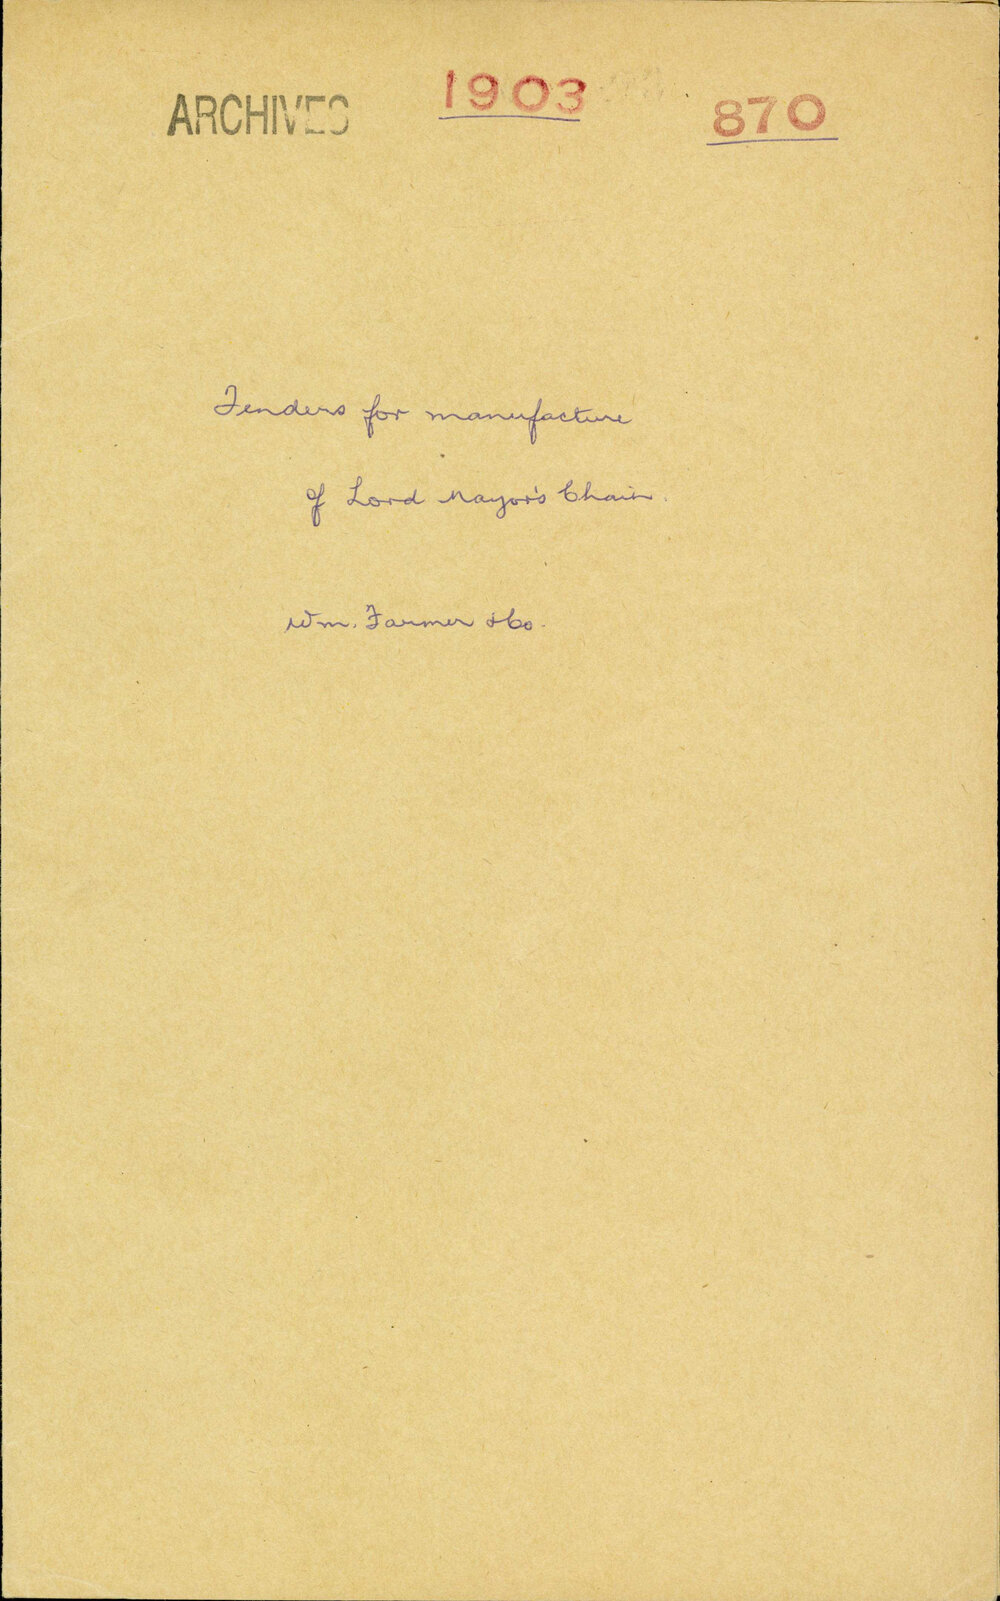 ARCHIVES 1903 870
Tenders for manufacture
of Lord Mayor's Chain.
Wm. Farmer & Co.